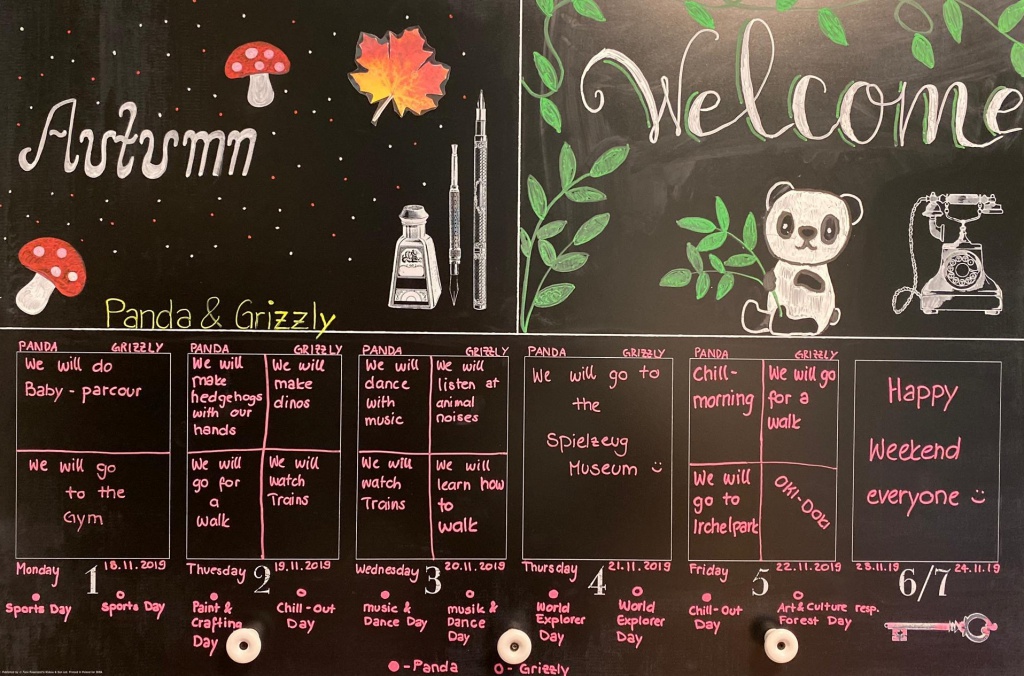 Autumn
Welcome
Panda & Grizzly
PANDA GRIZZLY
We will do
Baby - parcour
We will go
to the
Gym
Monday 1 18.11.2019
Sports Day Sports Day
PANDA GRIZZLY
We will
make
hedgehogs
with our
hands
We will
make
dinos
We will
go for
a
walk
We will
watch
Trains
Thuesday 2 19.11.2019
Paint &
Crafting
Day
Chill-Out
Day
PANDA GRIZZLY
We will
dance
with
music
We will
listen at
animal
noises
We will
watch
Trains
We will
learn how
to
walk
Wednesday 3 20.11.2019
music &
Dance Day
musik &
Dance
Day
PANDA GRIZZLY
We will go to
the
Spielzeug
Museum
Thursday 4 21.11.2019
World
Explorer
Day
World
Explorer
Day
PANDA GRIZZLY
Chill-
morning
We will go
for a
walk
We will
go to
Irchelpark
OKI-DOKI
Friday 5 22.11.2019
Chill-Out
Day
Art & Culture resp.
Forest Day
Happy
Weekend
everyone
23.11.19 6/7 24.11.19
- Panda - Grizzly